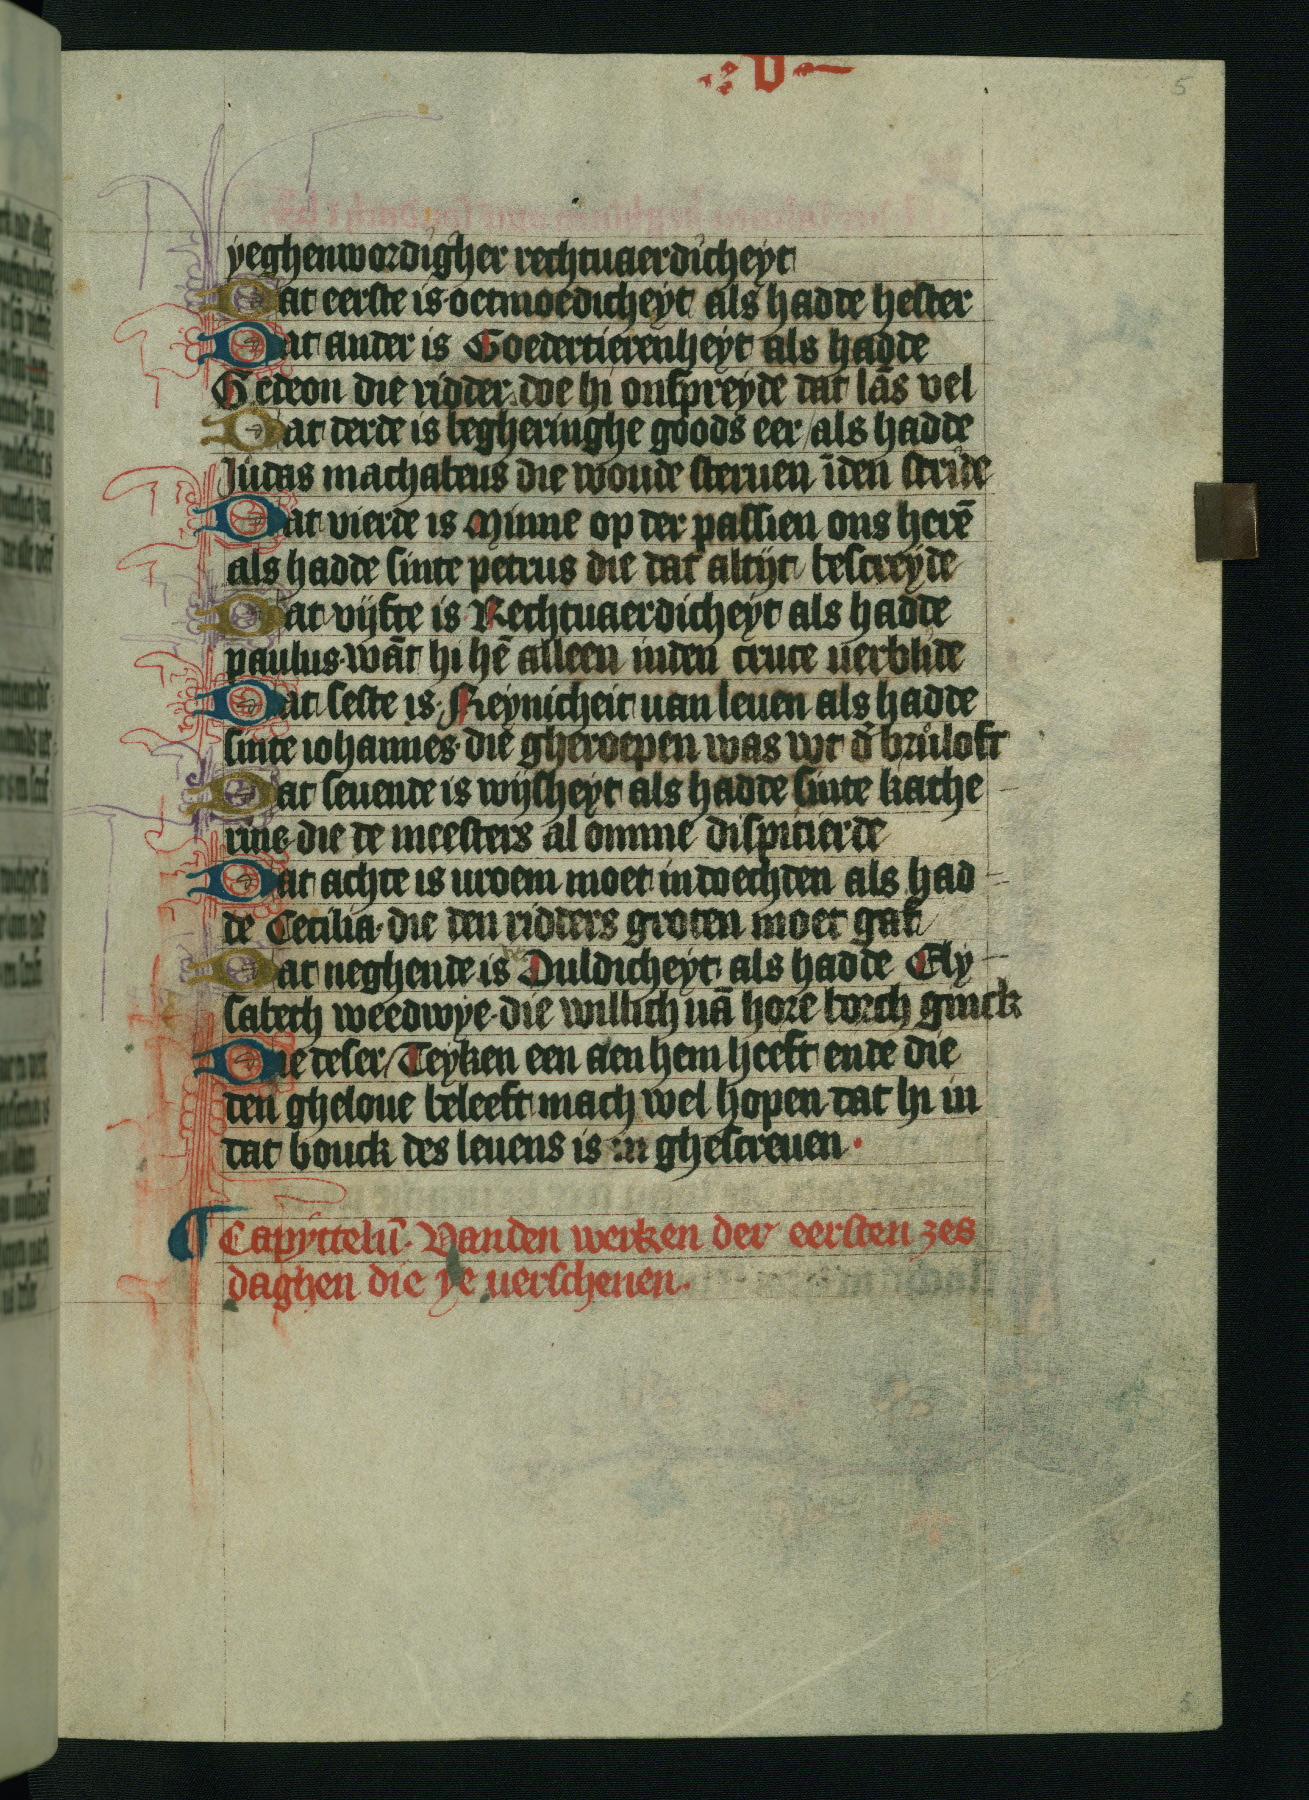 V
5
yeghenwordigher rechtuaerdicheyt
Dat eerste is oetmoedicheyt als hadde hester
Dat ander is Goedertierenheyt als hadde
Gedeon die ridder doe hi onspreyde dat lās vel
Dat derde is begheringhe goods eer als hadde
Judas machabeus die woude steruen īden stride
Dat vierde is Minne op der passien ons herē
als hadde sinte petrus die dat altijt bescreyde
Dat vijfte is Rechtuaerdicheyt als hadde
paulus wāt hi hē alleen inden cruce verblide
Dat seste is Reynicheit van leuen als hadde
sinte iohannes die gheroepen was wt d̄ bruloft
Dat seuende is wijsheyt als hadde sinte kathe
rine die de meesters al omme dispitierde
Dat achte is vroem moet in doechden als had
de Cecilia die den ridders groten moet gaf
Dat neghende is Duldicheyt als hadde Ely
sabeth weedwye die willich uā hore borch ginck
Die deser Teyken een aen hem heeft ende die
den gheloue beleeft mach wel hopen dat hi in
dat bouck des leuens is in ghescreuen.
Capyttelū. Vanden werken der eersten zes
daghen die ye verschenen.
5